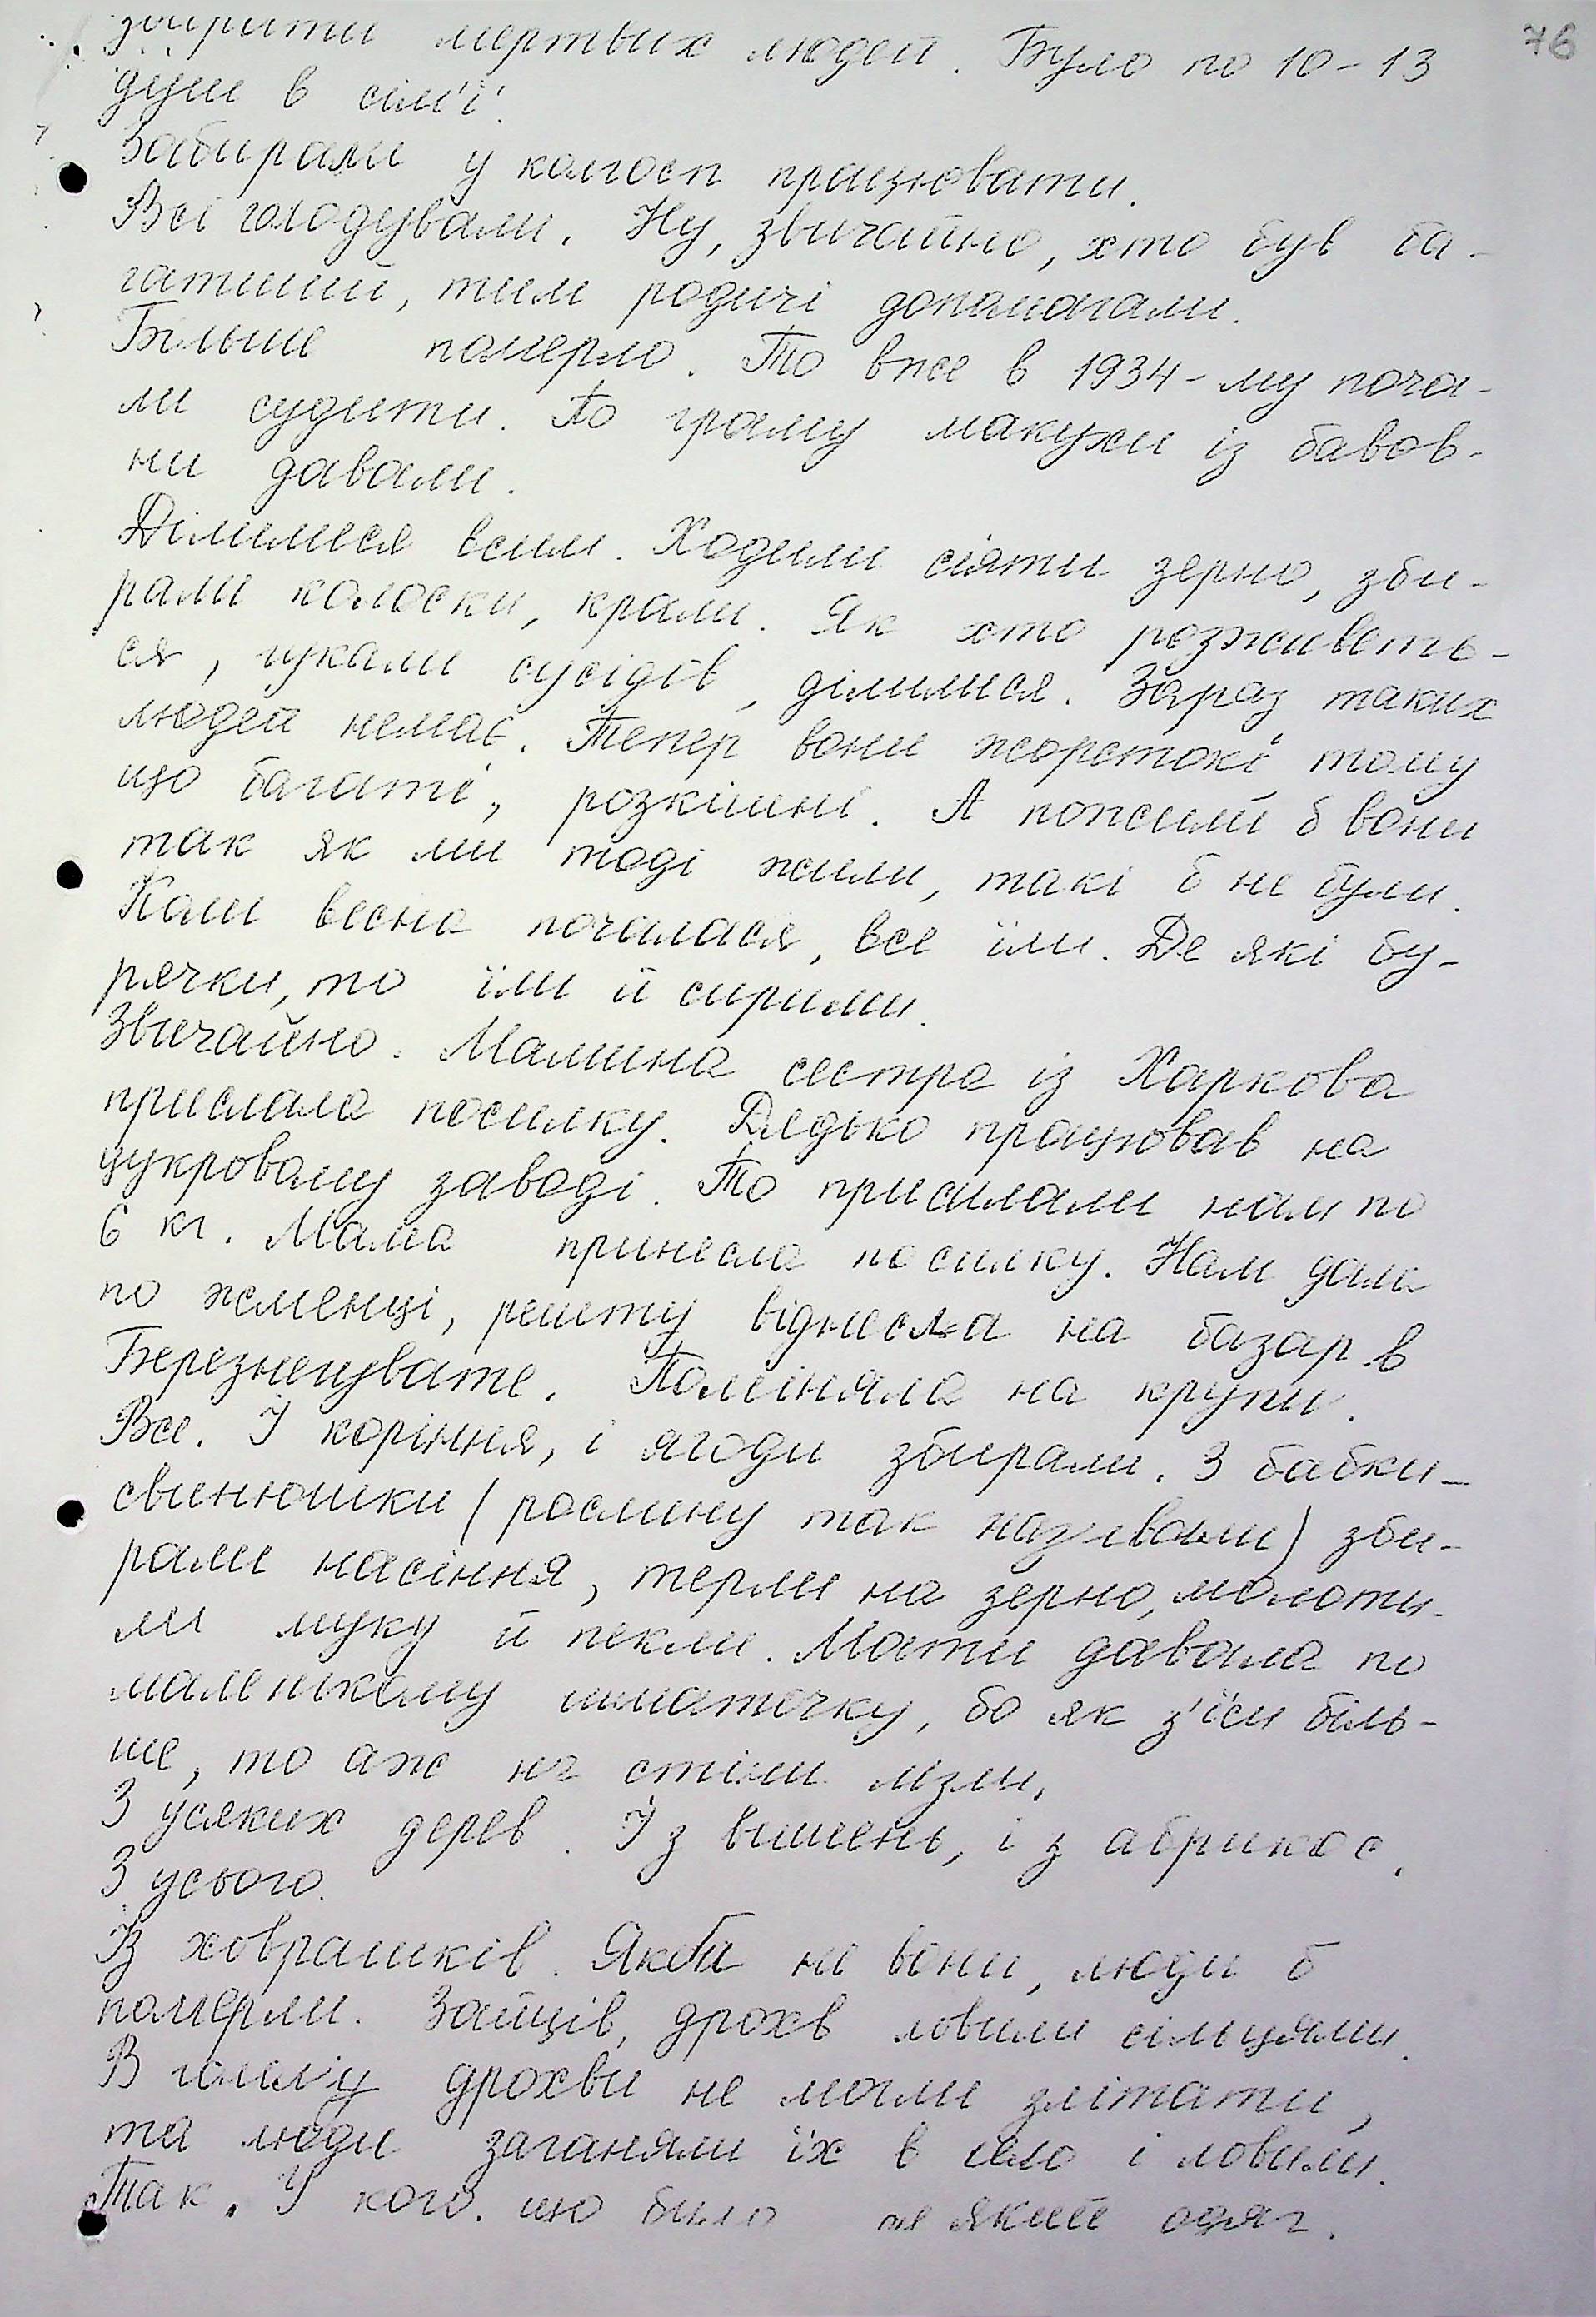 76
збирати мертвих людей. Було по 10-13
душ в сім'ї.
Забирали у колгосп працювати.
Всі голодували. Ну, звичайно, хто був ба-
гатший, тим родичі допомагали.
Більше померло. То вже в 1934-му поча-
ли судити. По граму макухи із бавов-
ни давали.
Ділилися всим. Ходили сіяти зерно, зби-
рали колоски, крали. Як хто розживеть-
ся, гукали сусідів, ділилися. Зараз таких
людей немає. Тепер вони жорстокі тому
що багаті, розкішні. А пожили б вони
так як ми тоді жили, такі б не були.
Коли весна почалася, все їли. Де які бу-
рячки, то їли й сирими.
Звичайно. Мамина сестра із Харкова
прислала посилку. Дядько працював на
цукровому заводі. То присилали нам по
6 кг. Мама принесла посилку. Нам дала
по жменці, решту віднесла на базар в
Березнегувате. Поміняла на крупи.
Все. І коріння, і ягоди збирали. З бабки-
свинюшки (рослину так називали) зби-
рали насіння, терли на зерно, молоти-
ли муку й пекли. Мати давала по
маленькому шматочку, бо як з'їси біль-
ше, то аж на стіни лізли.
З усяких дерев. Із вишень, і з абрикос.
З усього.
Із ховрашків. Якби не вони, люди б
померли. Зайців, дрохв ловили сільцями.
В дрохви не могли злітати,
та люди заганяли їх в село і ловили.
Так. У кого що було який одяг.